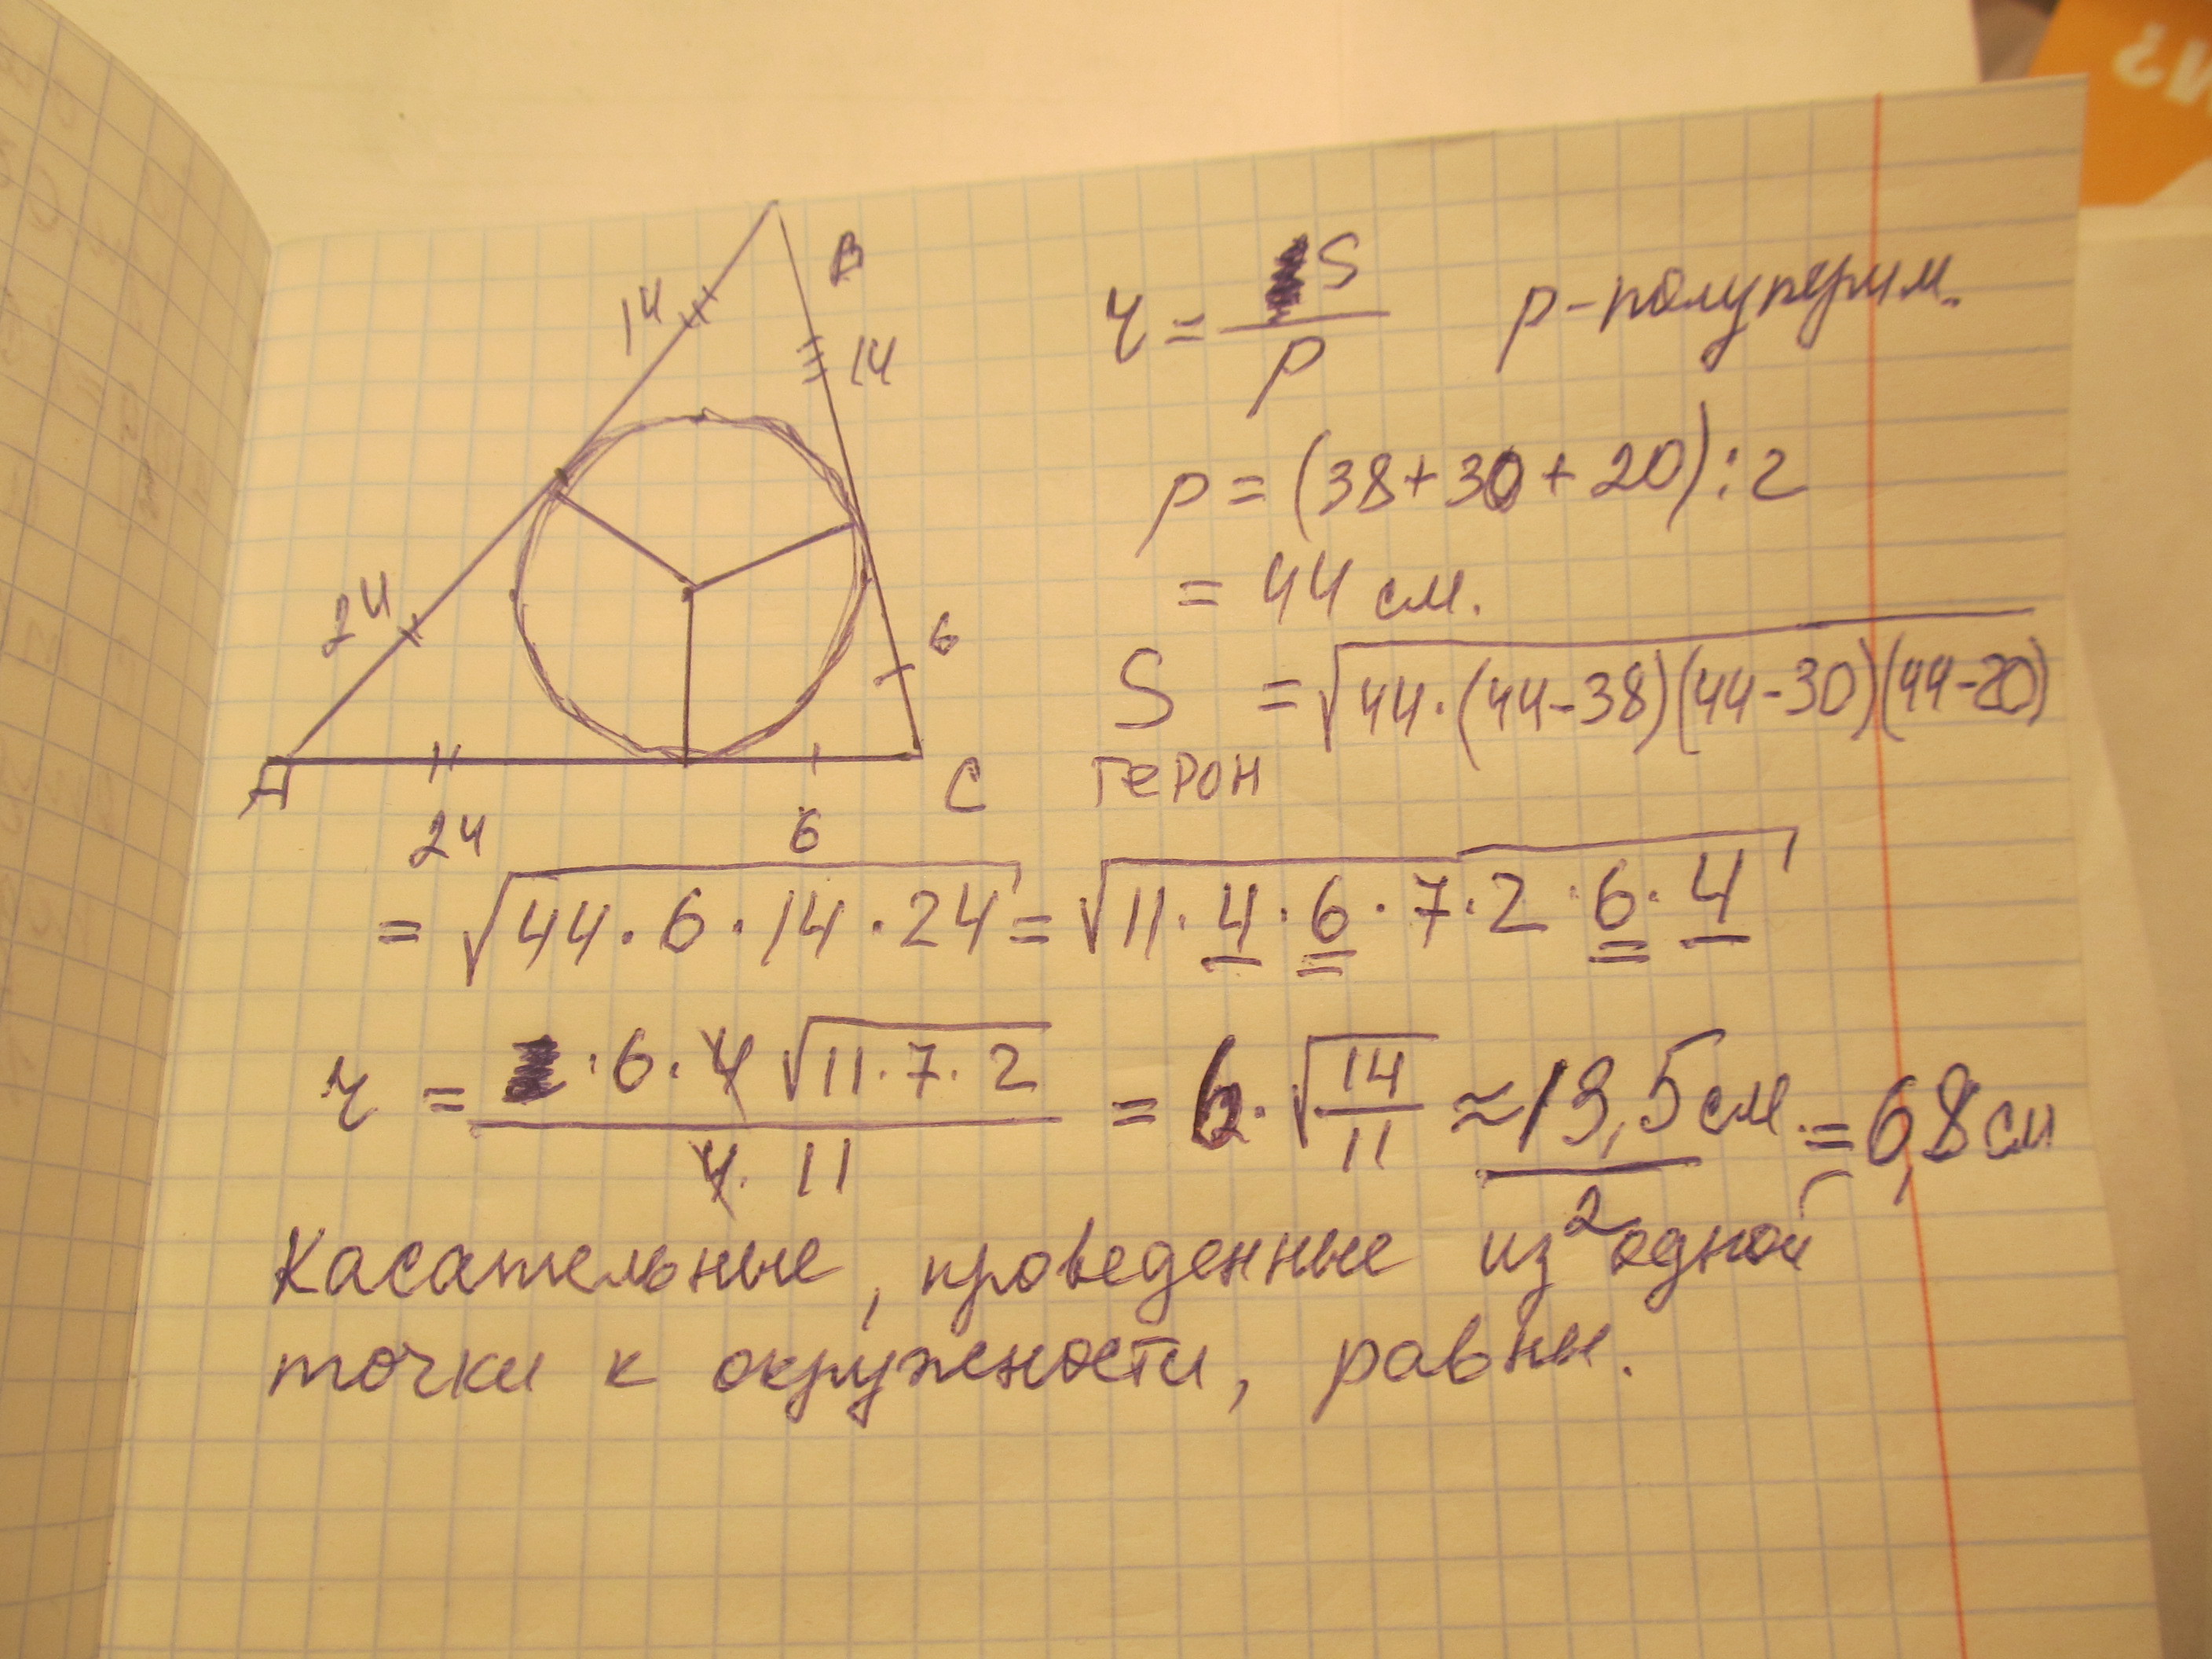 B
14
14
24
6
A
C
24
6
r = S / p p - полуперим.
p = (38+30+20):2
= 44 см.
S = √44·(44-38)(44-30)(44-20)
герон
= √44·6·14·24 = √11·4·6·7·2·6·4
r = ·6·4√11·7·2 / 4·11 = 6·√14/11 ≈ 13,5см / 2 = 6,8см
Касательные, проведенные из одной
точки к окружности, равны.